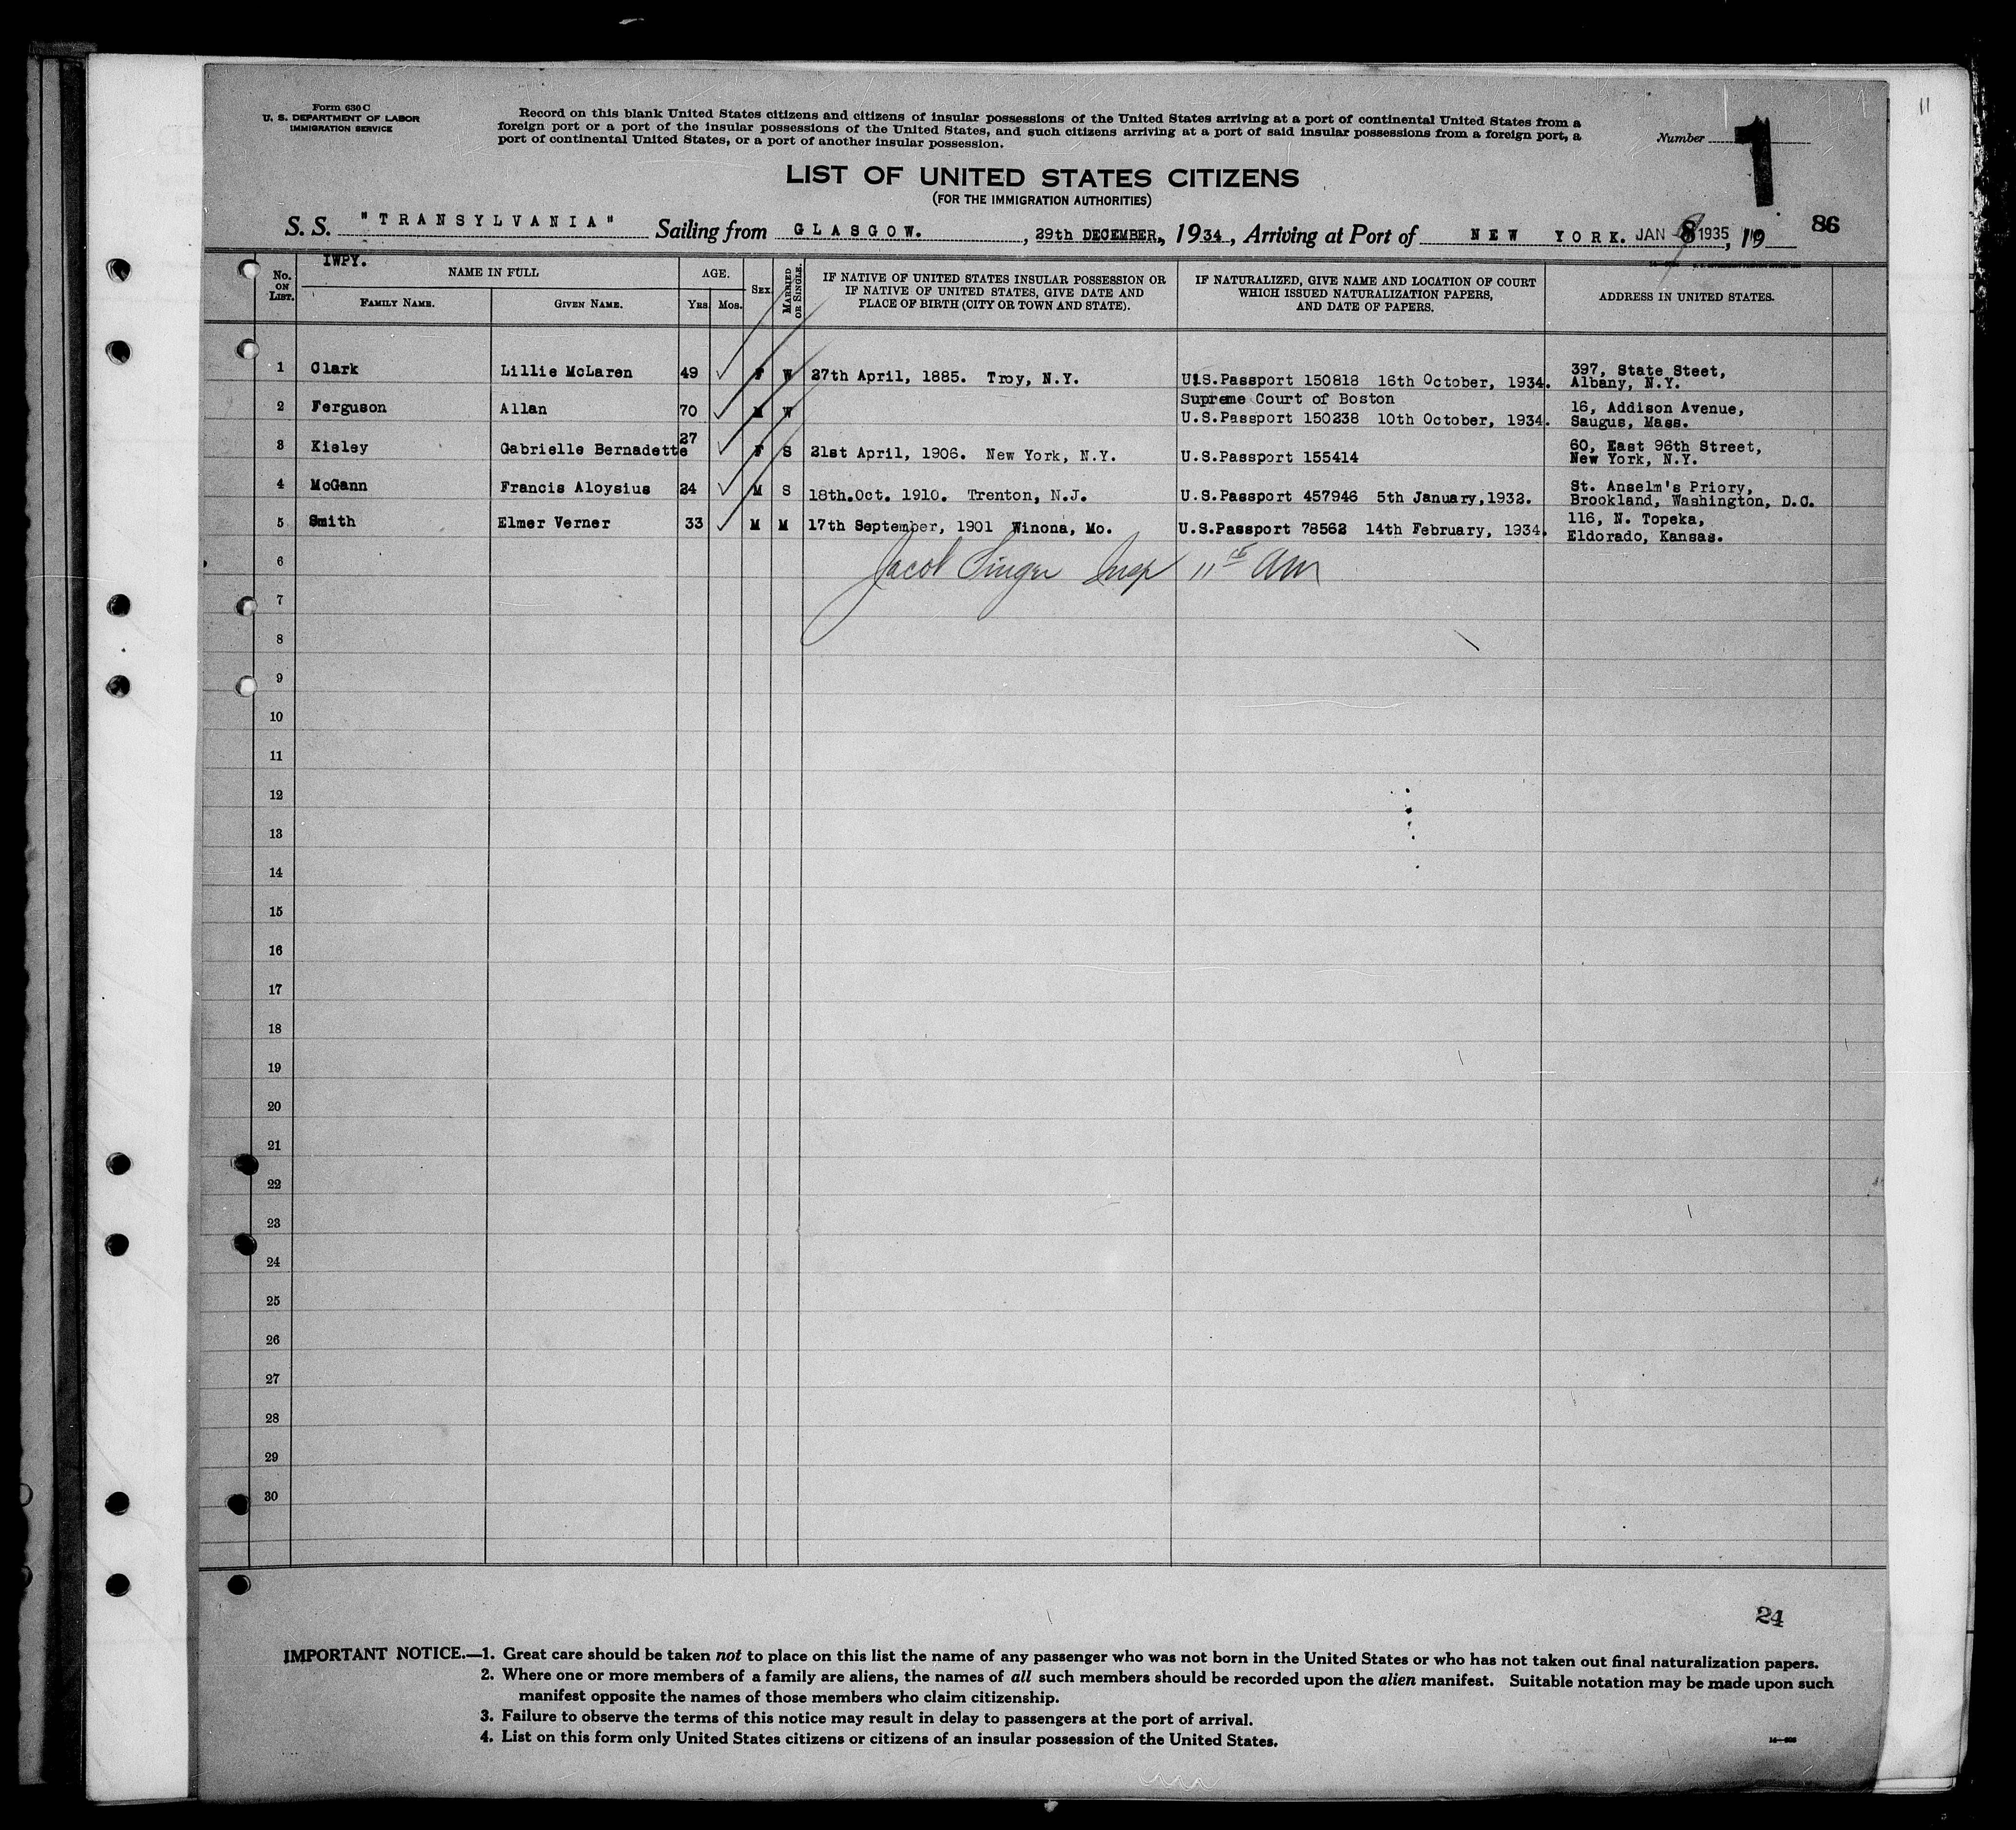 11
Form 630 C
U. S. DEPARTMENT OF LABOR
IMMIGRATION SERVICE
Record on this blank United States citizens and citizens of insular possessions of the United States arriving at a port of continental United States from a
foreign port or a port of the insular possessions of the United States, and such citizens arriving at a port of said insular possessions from a foreign port, a
port of continental United States, or a port of another insular possession.
Number 1
LIST OF UNITED STATES CITIZENS
(FOR THE IMMIGRATION AUTHORITIES)
S. S. "TRANSYLVANIA" Sailing from GLASGOW. , 29th DECEMBER., 1934, Arriving at Port of NEW YORK. JAN 8 1935, 19 86
IWPY.
No. ON LIST. NAME IN FULL AGE. SEX MARRIED OR SINGLE. IF NATIVE OF UNITED STATES INSULAR POSSESSION OR IF NATIVE OF UNITED STATES, GIVE DATE AND PLACE OF BIRTH (CITY OR TOWN AND STATE). IF NATURALIZED, GIVE NAME AND LOCATION OF COURT WHICH ISSUED NATURALIZATION PAPERS, AND DATE OF PAPERS. ADDRESS IN UNITED STATES.
FAMILY NAME. GIVEN NAME. YRS. MOS.
1 Clark Lillie McLaren 49 F W 27th April, 1885. Troy, N.Y. U.S.Passport 150818 16th October, 1934. 397, State Steet, Albany, N.Y.
2 Ferguson Allan 70 M W Supreme Court of Boston U.S.Passport 150238 10th October, 1934. 16, Addison Avenue, Saugus, Mass.
3 Kieley Gabrielle Bernadette 27 F S 21st April, 1906. New York, N.Y. U.S.Passport 155414 60, East 96th Street, New York, N.Y.
4 McGann Francis Aloysius 24 M S 18th.Oct. 1910. Trenton, N.J. U.S.Passport 457946 5th January,1932. St. Anselm's Priory, Brookland, Washington, D.C.
5 Smith Elmer Verner 33 M M 17th September, 1901 Winona, Mo. U.S.Passport 78562 14th February, 1934. 116, N. Topeka, Eldorado, Kansas.
6 Jacob Singer Insp 11 15 am
7
8
9
10
11
12
13
14
15
16
17
18
19
20
21
22
23
24
25
26
27
28
29
30
24
IMPORTANT NOTICE.—1. Great care should be taken not to place on this list the name of any passenger who was not born in the United States or who has not taken out final naturalization papers.
2. Where one or more members of a family are aliens, the names of all such members should be recorded upon the alien manifest. Suitable notation may be made upon such
manifest opposite the names of those members who claim citizenship.
3. Failure to observe the terms of this notice may result in delay to passengers at the port of arrival.
4. List on this form only United States citizens or citizens of an insular possession of the United States.